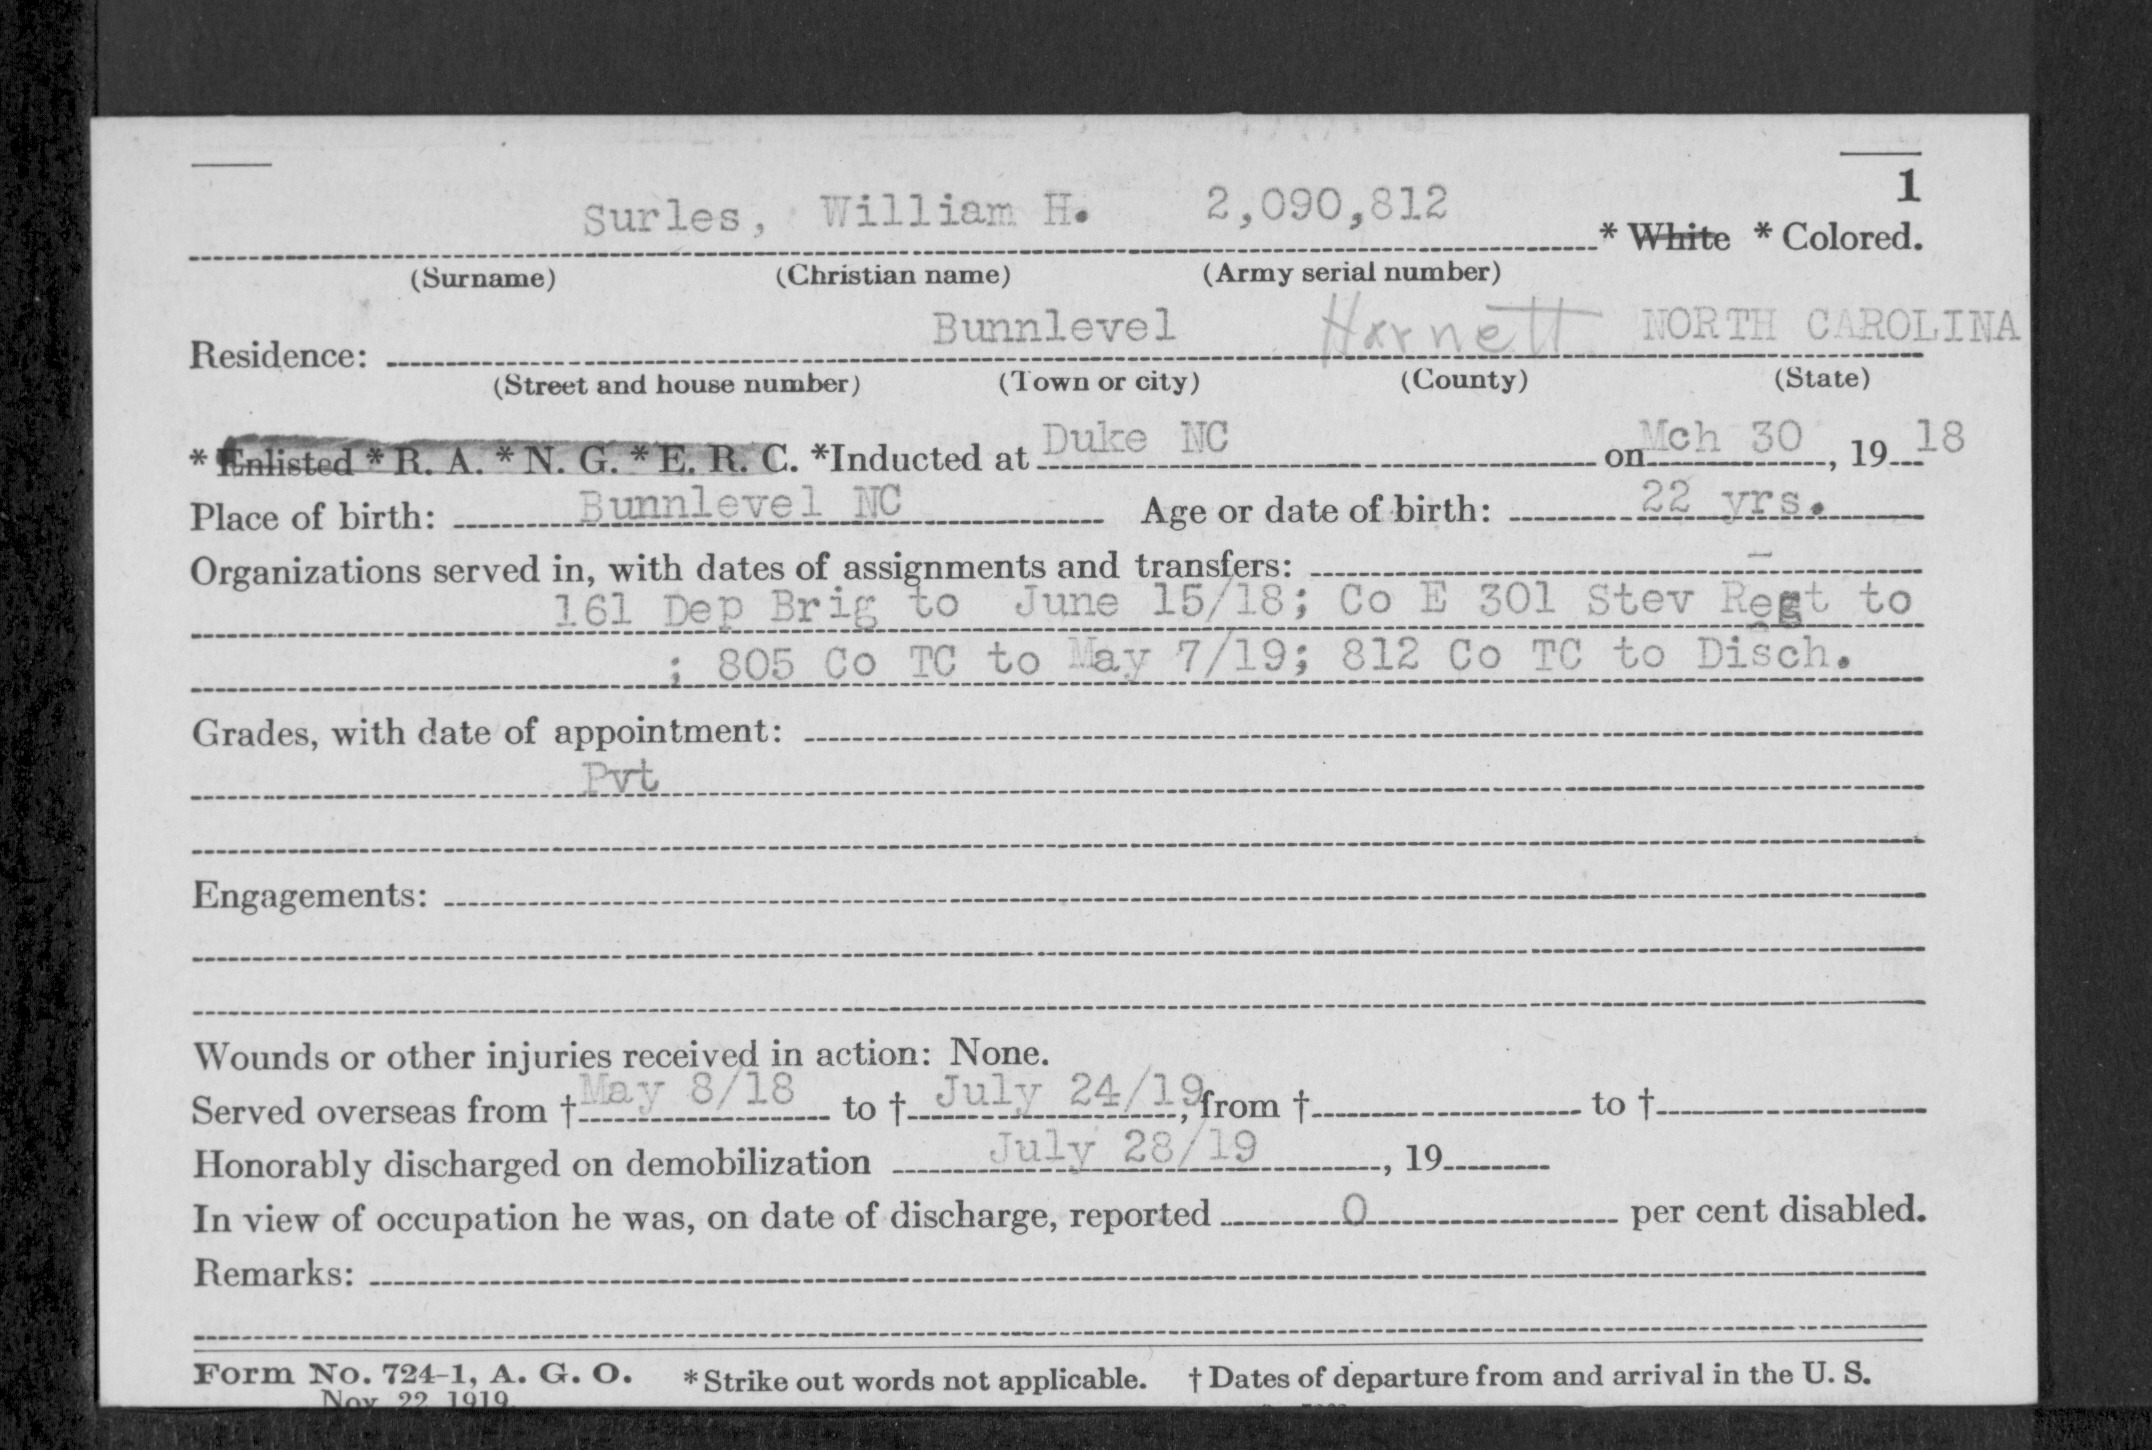 1
Surles, William H. 2,090,812 * White * Colored.
(Surname) (Christian name) (Army serial number)
Residence: Bunnlevel Harnett NORTH CAROLINA
(Street and house number) (Town or city) (County) (State)
* Enlisted * R. A. * N. G. * E. R. C. *Inducted at Duke NC on Mch 30, 19 18
Place of birth: Bunnlevel NC Age or date of birth: 22 yrs.
Organizations served in, with dates of assignments and transfers:
161 Dep Brig to June 15/18; Co E 301 Stev Regt to
; 805 Co TC to May 7/19; 812 Co TC to Disch.
Grades, with date of appointment:
Pvt
Engagements:
Wounds or other injuries received in action: None.
Served overseas from † May 8/18 to † July 24/19, from † to †
Honorably discharged on demobilization July 28/19, 19
In view of occupation he was, on date of discharge, reported 0 per cent disabled.
Remarks:
Form No. 724-1, A. G. O. * Strike out words not applicable. † Dates of departure from and arrival in the U. S.
Nov. 22, 1919